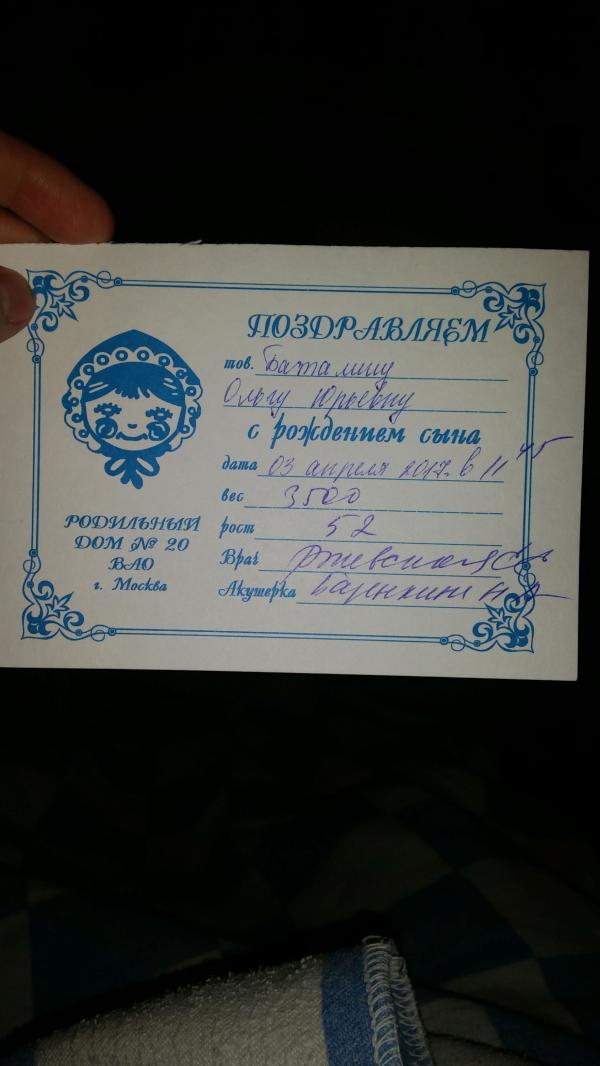 ПОЗДРАВЛЯЕМ
тов. Баталину
Ольгу Юрьевну
с рождением сына
дата 03 апреля 2017г. в 11 45
вес 3500
рост 52
Врач Ржевская
Акушерка
РОДИЛЬНЫЙ
ДОМ № 20
ВАО
г. Москва